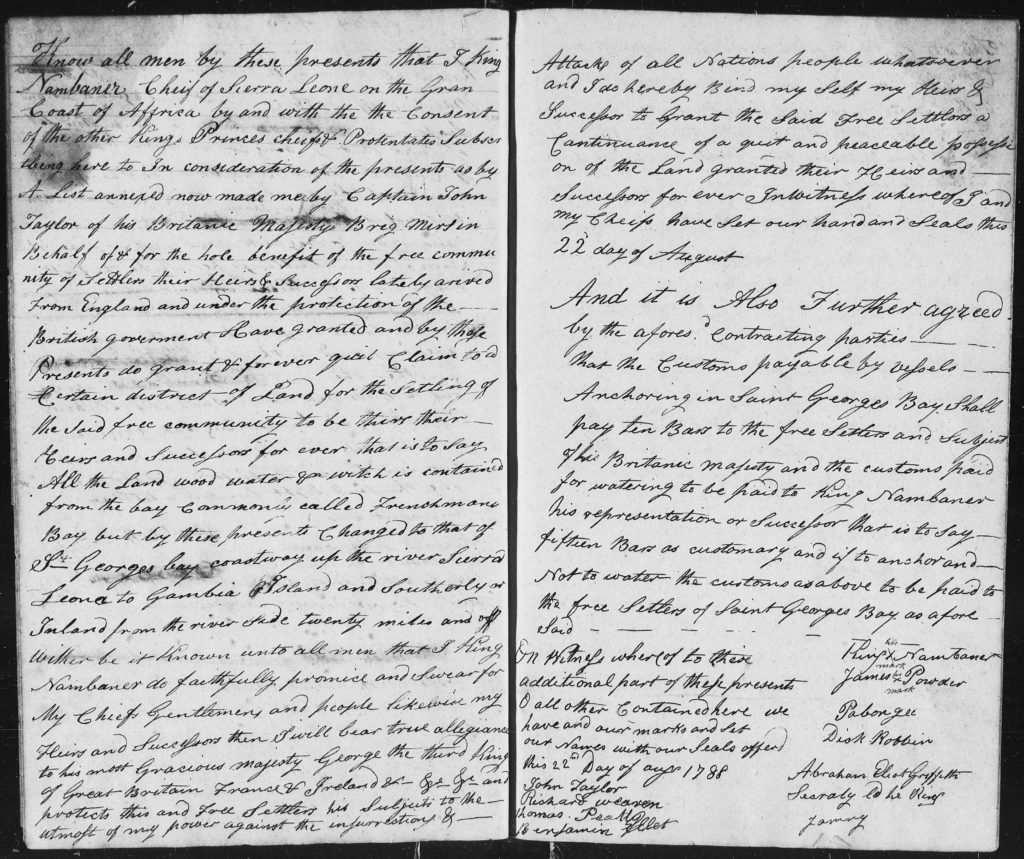 Know all men by these presents that I King
Nambaner Cheif of Sierra Leone on the Gran
Coast of Affrica by and with the the Consent
of the other Kings Princes cheifs & Protentates Subscri
being here to In consideration of the presents as by
A List annexed now made me by Captain John
Taylor of his Britanic Majestys Brig Mirs in
Behalf of & for the hole benefit of the free commu
nity of Settlers their Heirs & Successors lateby arived
From England and under the protection of the —
British goverment Have granted and by these
Presents do grant & forever quit Claim to a
Certain district of Land for the Settling of
the Said free community to be theirs their —
Heirs and Successors for ever that is to Say
All the Land wood water &c witch is contained
from the bay Commonly called Frenshmans
Bay but by these presents Changed to that of
St Georges bay coastway up the river Sierra
Leona to Gambia Island and Southerly or
Inland from the river side twenty miles and off
be it Known unto all men that I King
Nambaner do faithfully promice and Swear for
My Chiefs Gentlemen and people likewise my
Heirs and Successors then I will bear true allegiance
to his most Gracious majesty George the third King
of Great Britain France & Ireland &c &c &c and
protects this and Free Settlers his Subjects to the —
utmost of my power against the insurrections & —
Attacks of all Nations people whatsoever
and I do hereby Bind my Self my Heirs &
Successor to Grant the Said Free Settlors a
Cantinuance of a quit and peaceable possessi
on of the Land granted their Heirs and —
Successors for ever In Witness whereof I and
my Cheifs have Set our hand and Seals this
22d day of August
And it is Also Further agreed
by the afores.d Contracting parties — —
that the Customs payable by vessels — —
Anchoring in Saint Georges Bay Shall
pay ten Bars to the free Setlers and Subject
this Britanic majesty and the customs paid
for watering to be paid to King Nambaner
his representation or Successor that is to Say —
fifteen Bars as customary and if to anchor and —
Not to water the customs as above to be paid to
the free Setlers of Saint Georges Bay as afore
Said — — — — —
In Witness whereof to these
additional part of these presents
& all other Contained here we
have and our marks and Set
our Names with our Seals
this 22d Day of augs 1788
John Taylor
Richard weaver
thomas. Peall
Benjamin Ellet
King his x mark Nambaner
James his x mark Powder
Pabongee
Dick Robbin
Abraham Eliot Griffith
Secratry to the King
Jammy